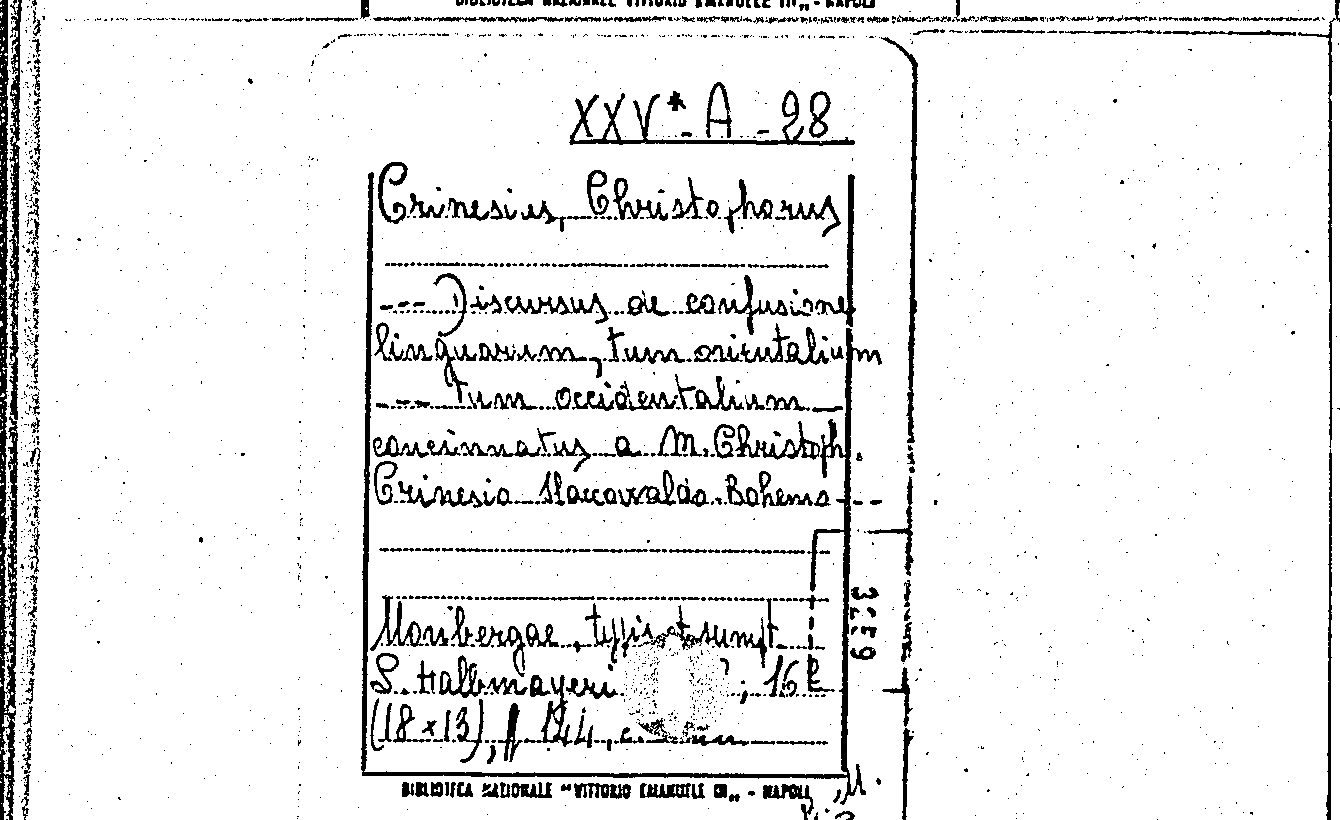 BIBLIOTECA NAZIONALE VITTORIO EMANUELE III„ - NAPOLI
XXV* A - 28
Crinesius, Christophorus
--- Discursus de confusione
linguarum, tum orientalium
--- tum occidentalium
concinnatus a M. Christoph.
Crinesio Slaccovaldo. Bohemo ---
Noribergae, typis et sumpt.
S. Halbmayeri ; 16
(18 x 13), p 144, c.
3259
BIBLIOTECA NAZIONALE "VITTORIO EMANUELE III„ - NAPOLI